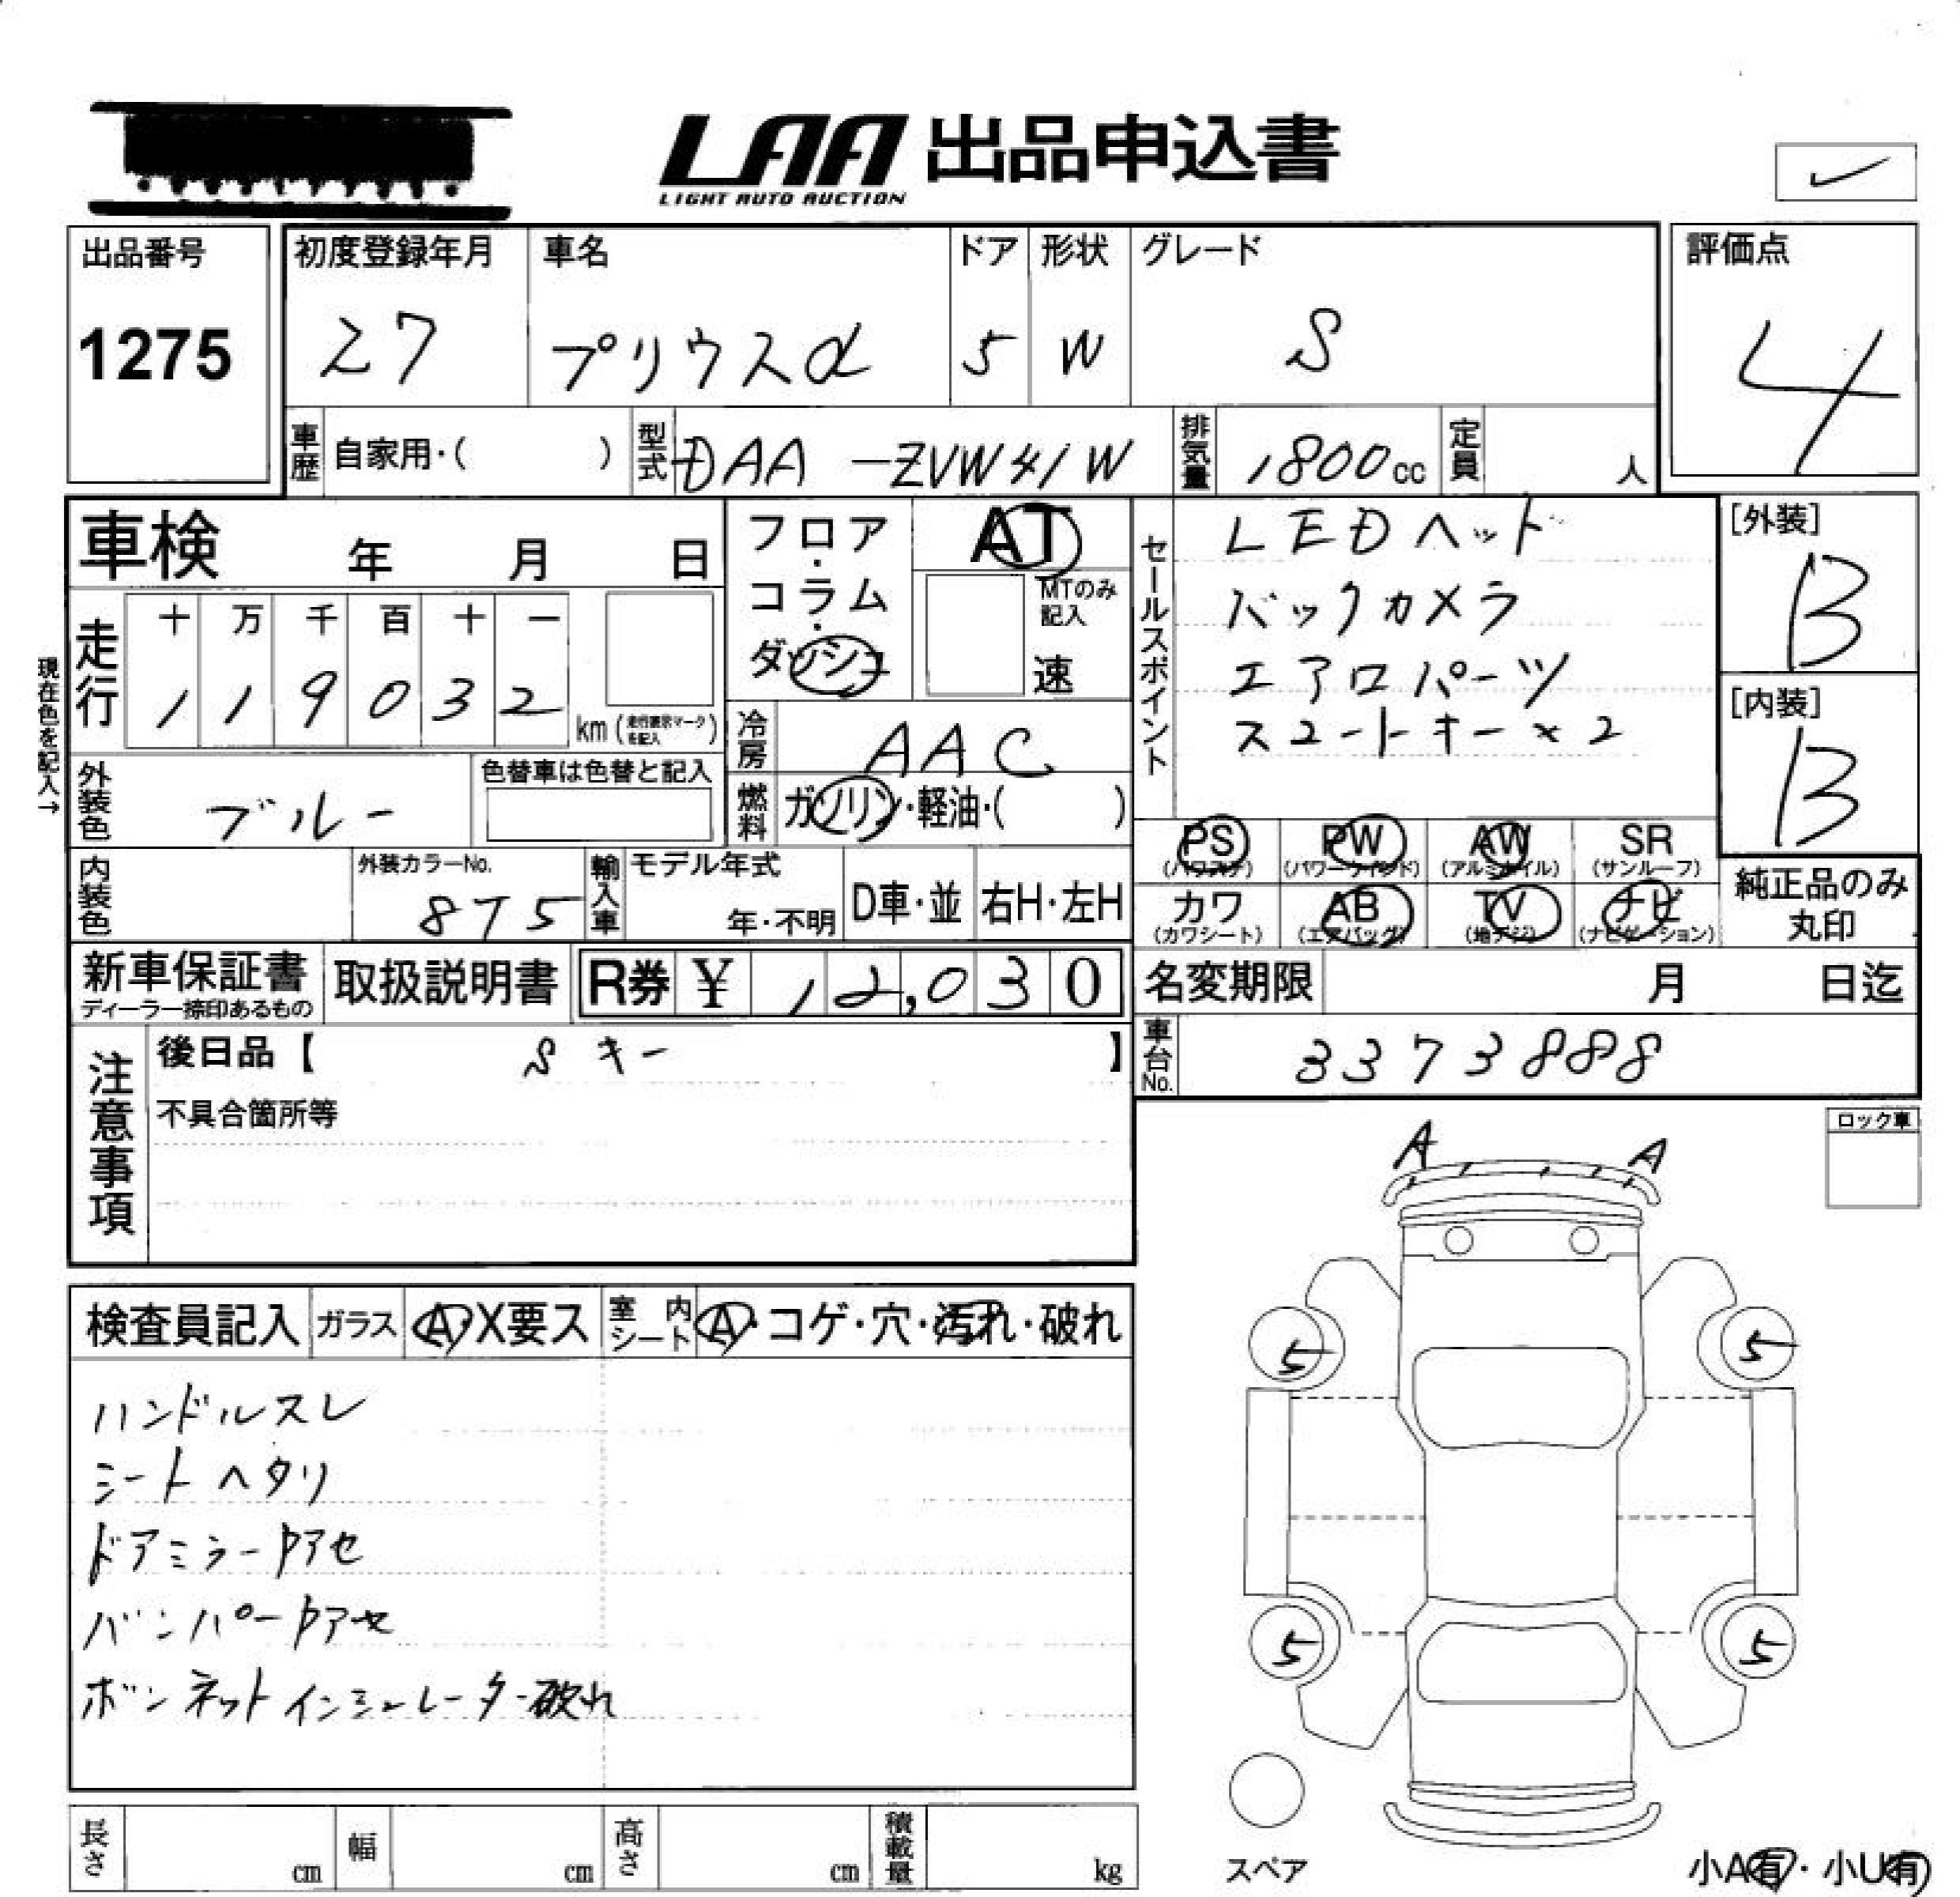 LAA 出品申込書
LIGHT AUTO AUCTION
出品番号
1275
初度登録年月
27
車名
プリウスα
ドア
5
形状
W
グレード
S
評価点
4
車歴 自家用・( )
型式 DAA -ZVW41W
排気量 1800cc
定員 人
車検 年 月 日
フロア・コラム・ダッシュ
AT
MTのみ記入
速
セールスポイント
LEDヘッド
バックカメラ
エアロパーツ
スマートキー×2
[外装]
B
[内装]
B
現在色を記入→
走行
十 万 千 百 十 一
1 1 9 0 3 2
km (走行表示マークを記入)
冷房 AAC
外装色 ブルー
色替車は色替と記入
燃料 ガソリン・軽油・( )
PS (パワステ)
PW (パワーウインド)
AW (アルミホイル)
SR (サンルーフ)
カワ (カワシート)
AB (エアバッグ)
TV (地デジ)
ナビ (ナビゲーション)
純正品のみ丸印
内装色
外装カラーNo.
8T5
輸入車
モデル年式
年・不明
D車・並
右H・左H
新車保証書
ディーラー捺印あるもの
取扱説明書
R券 ¥ 12,030
名変期限 月 日迄
注意事項
後日品【 Sキー 】
不具合箇所等
車台No. 3373888
ロック車
A A
検査員記入
ガラス A・X要ス
室内シート A・コゲ・穴・汚れ・破れ
ハンドルスレ
シートヘタリ
ドアミラーUアセ
バンパーUアセ
ボンネットインシュレーター破れ
5 5
5 5
スペア
長さ cm
幅 cm
高さ cm
積載量 kg
小A有・小U有